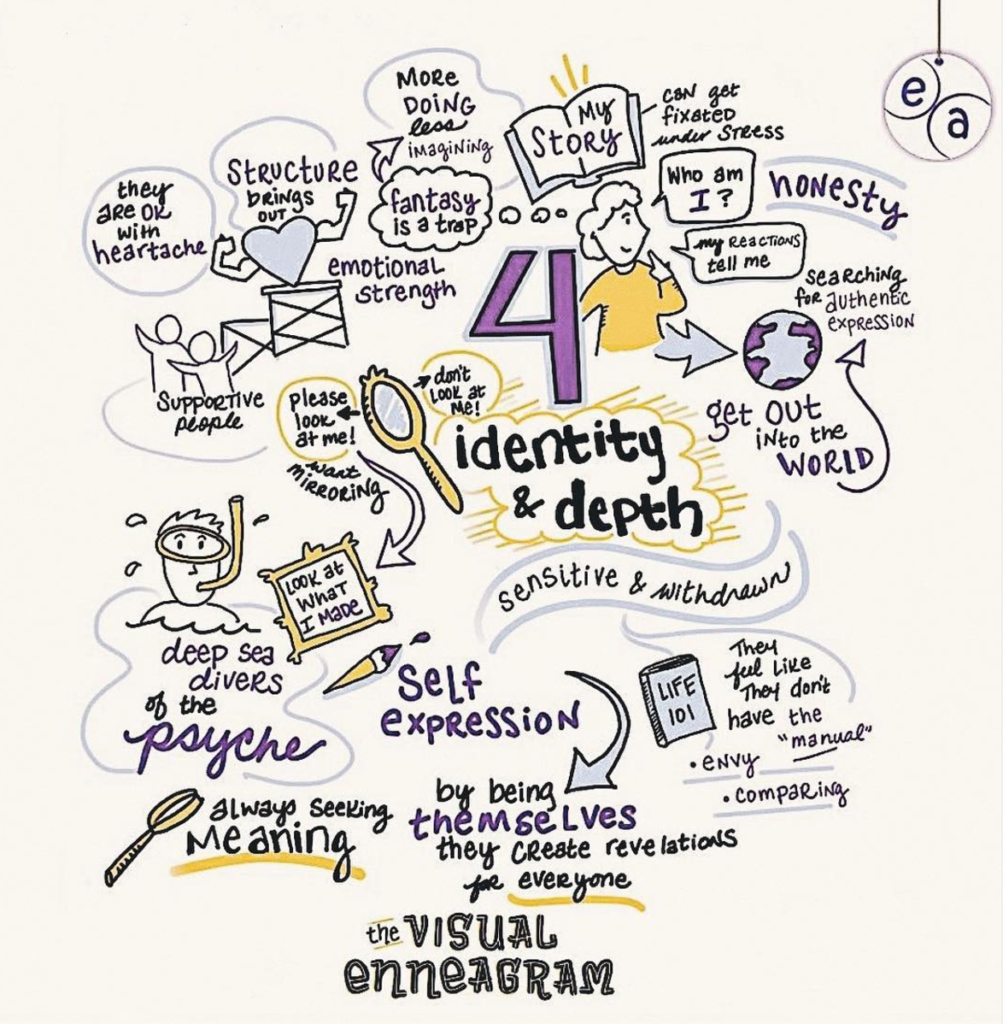 e
a
MORE
DOING
less
imagining
MY
STORY
can get
fixated
under STRESS
they
ARE OK
with
heartache
STRUCTURE
BRINGS
OUT
emotional
strength
fantasy
is a trap
Who am
I?
my REACTIONS
tell me
honesty
4
searching
for authentic
EXPRESSION
get out
into the
WORLD
SUPPORTIVE
people
please
look
at me!
don't
LOOK at
ME!
want
MIRRORING
identity
& depth
sensitive & withdrawn
LOOK at
WHAT
I MADE
deep sea
divers
of the
psyche
self
expression
LIFE
101
They
feel like
They don't
have the
"manual"
• envy
• comparing
always seeking
Meaning
by being
themselves
they create revelations
for everyone
the VISUAL
enneagram